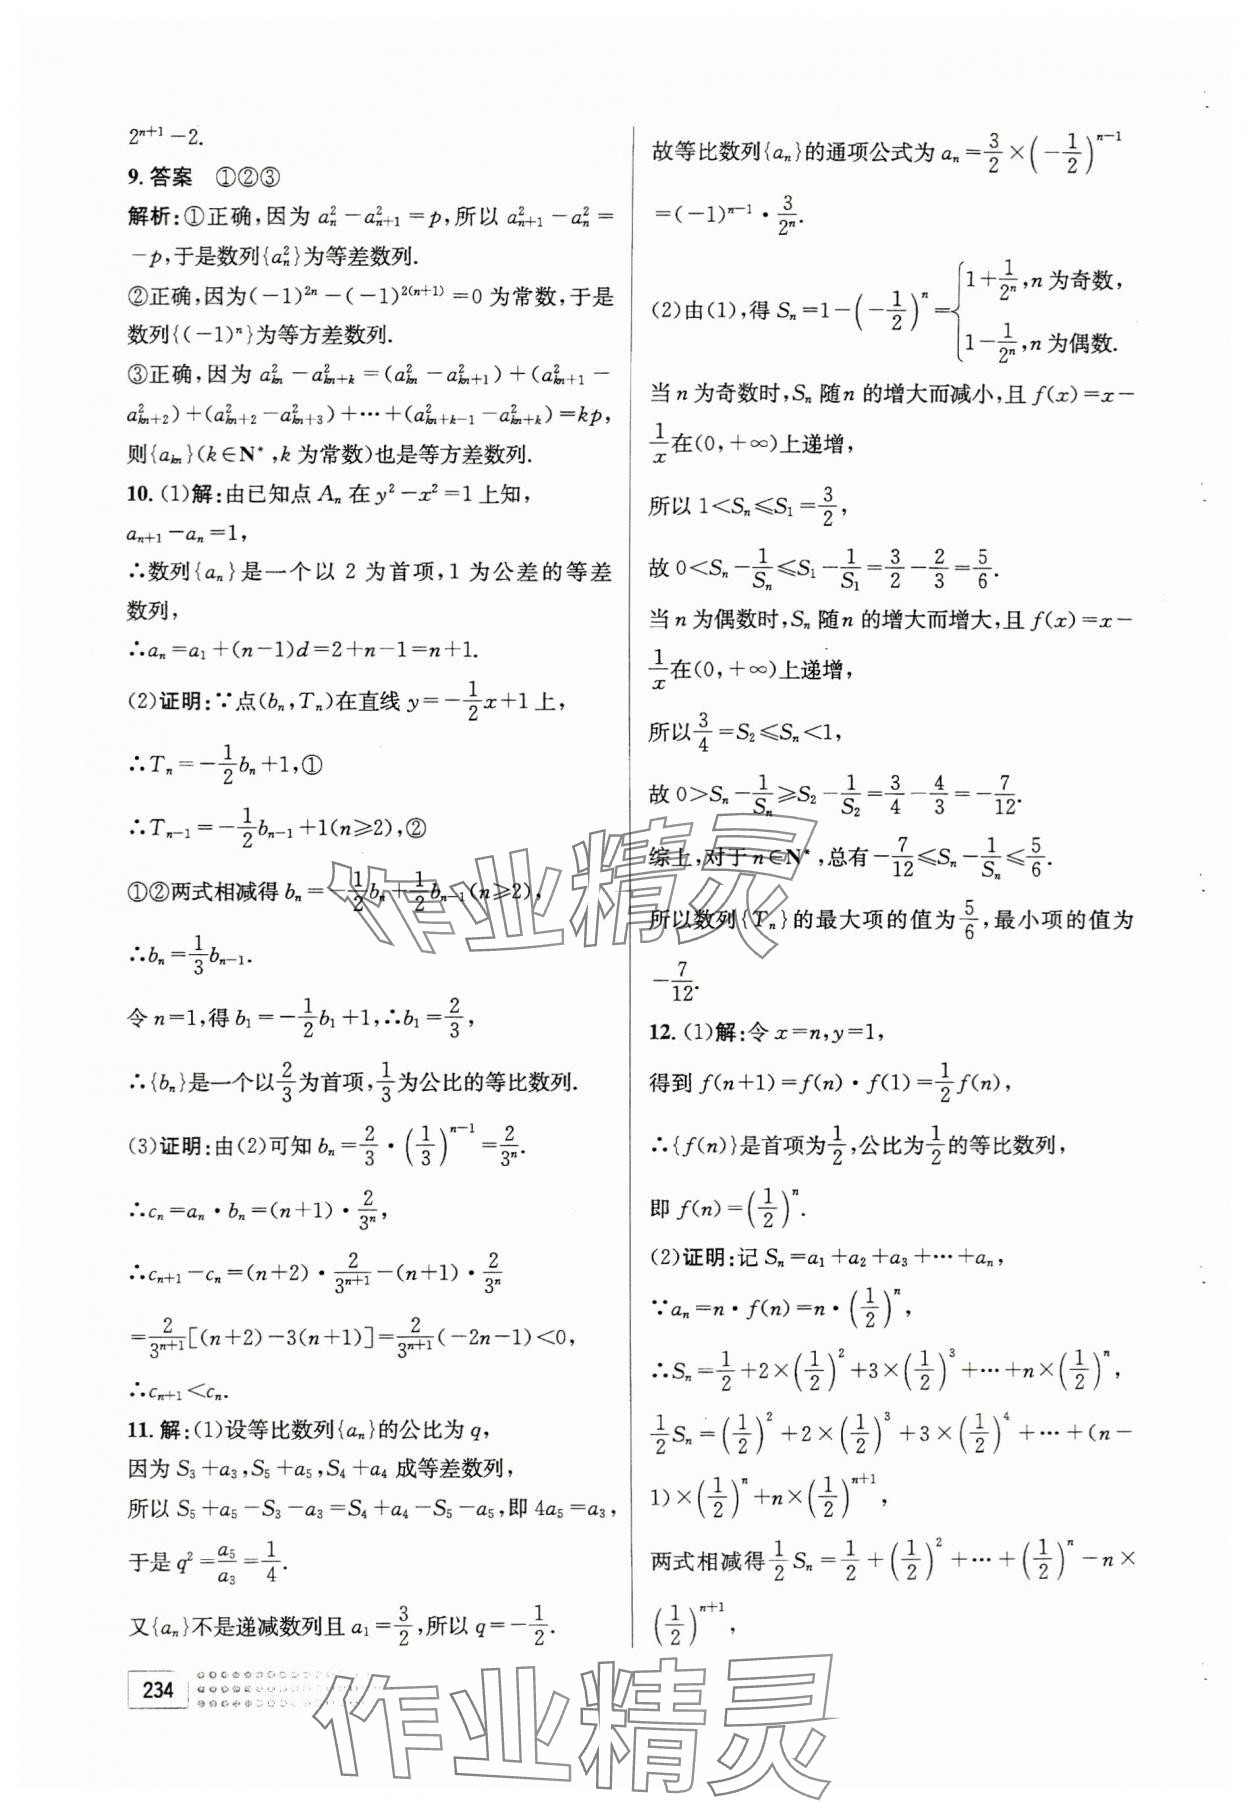 2^{n+1}-2.
9. 答案 ①②③
解析:①正确,因为 a_n^2-a_{n+1}^2=p,所以 a_{n+1}^2-a_n^2=
-p,于是数列{a_n^2}为等差数列.
②正确,因为(-1)^{2n}-(-1)^{2(n+1)}=0 为常数,于是
数列{(-1)^n}为等方差数列.
③正确,因为 a_{kn}^2-a_{kn+k}^2=(a_{kn}^2-a_{kn+1}^2)+(a_{kn+1}^2-
a_{kn+2}^2)+(a_{kn+2}^2-a_{kn+3}^2)+⋯+(a_{kn+k-1}^2-a_{kn+k}^2)=kp,
则{a_{kn}}(k∈N*,k 为常数)也是等方差数列.
10. (1)解:由已知点 A_n 在 y^2-x^2=1 上知,
a_{n+1}-a_n=1,
∴数列{a_n}是一个以 2 为首项,1 为公差的等差
数列,
∴a_n=a_1+(n-1)d=2+n-1=n+1.
(2)证明:∵点(b_n,T_n)在直线 y=-\frac{1}{2}x+1 上,
∴T_n=-\frac{1}{2}b_n+1,①
∴T_{n-1}=-\frac{1}{2}b_{n-1}+1(n≥2),②
①②两式相减得 b_n=-\frac{1}{2}b_n+\frac{1}{2}b_{n-1}(n≥2),
∴b_n=\frac{1}{3}b_{n-1}.
令 n=1,得 b_1=-\frac{1}{2}b_1+1,∴b_1=\frac{2}{3},
∴{b_n}是一个以\frac{2}{3}为首项,\frac{1}{3}为公比的等比数列.
(3)证明:由(2)可知 b_n=\frac{2}{3}·(\frac{1}{3})^{n-1}=\frac{2}{3^n}.
∴c_n=a_n·b_n=(n+1)·\frac{2}{3^n},
∴c_{n+1}-c_n=(n+2)·\frac{2}{3^{n+1}}-(n+1)·\frac{2}{3^n}
=\frac{2}{3^{n+1}}[(n+2)-3(n+1)]=\frac{2}{3^{n+1}}(-2n-1)<0,
∴c_{n+1}<c_n.
11. 解:(1)设等比数列{a_n}的公比为 q,
因为 S_3+a_3,S_5+a_5,S_4+a_4 成等差数列,
所以 S_5+a_5-S_3-a_3=S_4+a_4-S_5-a_5,即 4a_5=a_3,
于是 q^2=\frac{a_5}{a_3}=\frac{1}{4}.
又{a_n}不是递减数列且 a_1=\frac{3}{2},所以 q=-\frac{1}{2}.
234
故等比数列{a_n}的通项公式为 a_n=\frac{3}{2}×(-\frac{1}{2})^{n-1}
=(-1)^{n-1}·\frac{3}{2^n}.
(2)由(1),得 S_n=1-(-\frac{1}{2})^n={1+\frac{1}{2^n},n 为奇数,
1-\frac{1}{2^n},n 为偶数.
当 n 为奇数时,S_n 随 n 的增大而减小,且 f(x)=x-
\frac{1}{x}在(0,+∞)上递增,
所以 1<S_n≤S_1=\frac{3}{2},
故 0<S_n-\frac{1}{S_n}≤S_1-\frac{1}{S_1}=\frac{3}{2}-\frac{2}{3}=\frac{5}{6}.
当 n 为偶数时,S_n 随 n 的增大而增大,且 f(x)=x-
\frac{1}{x}在(0,+∞)上递增,
所以\frac{3}{4}=S_2≤S_n<1,
故 0>S_n-\frac{1}{S_n}≥S_2-\frac{1}{S_2}=\frac{3}{4}-\frac{4}{3}=-\frac{7}{12}.
综上,对于 n∈N*,总有-\frac{7}{12}≤S_n-\frac{1}{S_n}≤\frac{5}{6}.
所以数列{T_n}的最大项的值为\frac{5}{6},最小项的值为
-\frac{7}{12}.
12. (1)解:令 x=n,y=1,
得到 f(n+1)=f(n)·f(1)=\frac{1}{2}f(n),
∴{f(n)}是首项为\frac{1}{2},公比为\frac{1}{2}的等比数列,
即 f(n)=(\frac{1}{2})^n.
(2)证明:记 S_n=a_1+a_2+a_3+⋯+a_n,
∵a_n=n·f(n)=n·(\frac{1}{2})^n,
∴S_n=\frac{1}{2}+2×(\frac{1}{2})^2+3×(\frac{1}{2})^3+⋯+n×(\frac{1}{2})^n,
\frac{1}{2}S_n=(\frac{1}{2})^2+2×(\frac{1}{2})^3+3×(\frac{1}{2})^4+⋯+(n-
1)×(\frac{1}{2})^n+n×(\frac{1}{2})^{n+1},
两式相减得\frac{1}{2}S_n=\frac{1}{2}+(\frac{1}{2})^2+⋯+(\frac{1}{2})^n-n×
(\frac{1}{2})^{n+1},
作业精灵
作业精灵